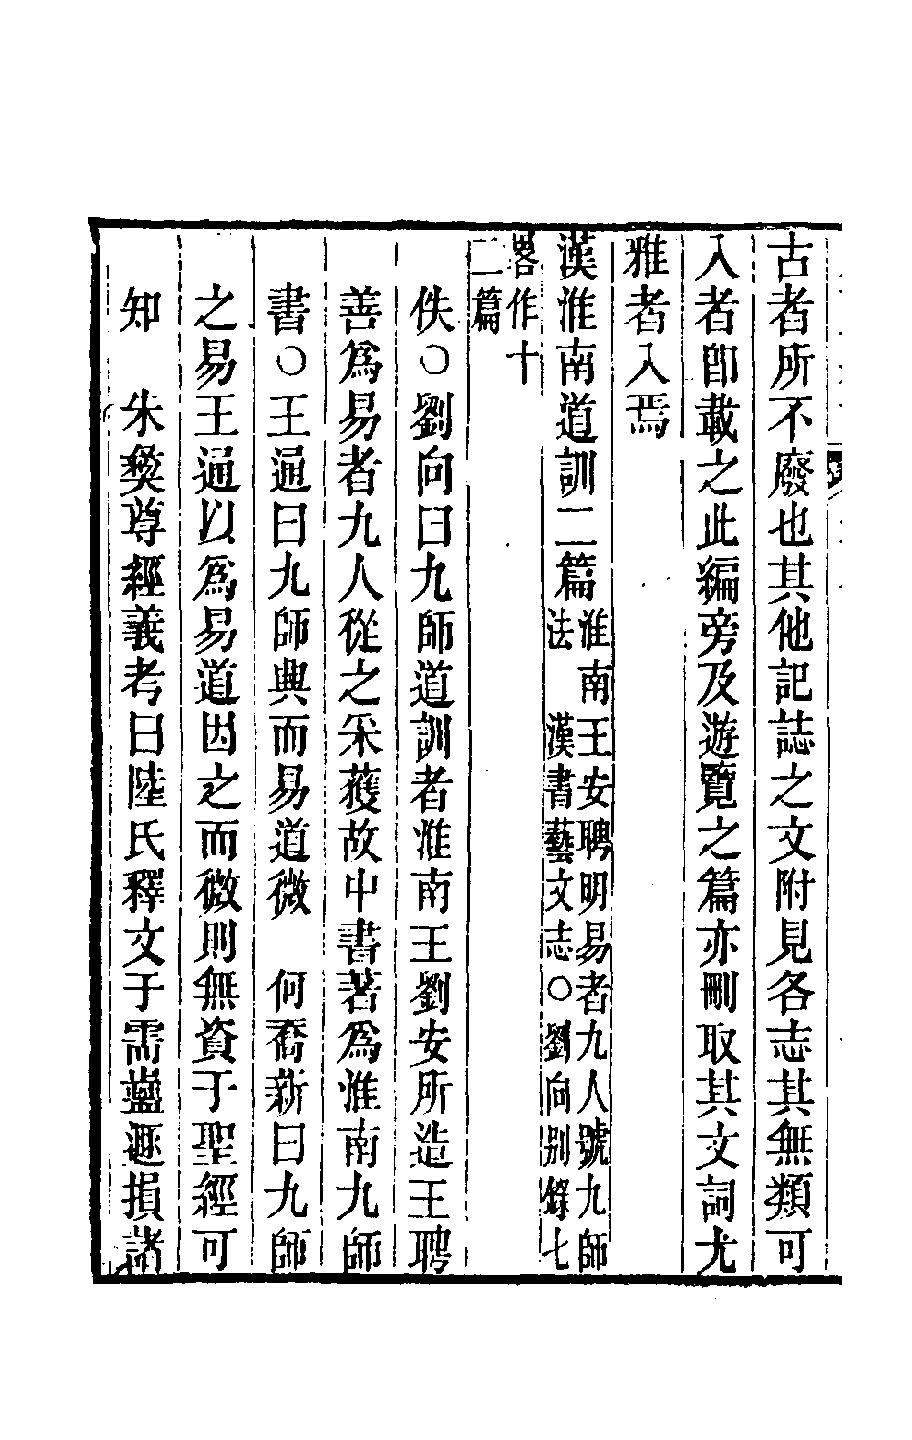 古者所不廢也其他記誌之文附見各志其無類可
入者卽載之此編旁及遊覽之篇亦刪取其文詞尤
雅者入焉
漢淮南道訓二篇淮南王安聘明易者九人號九師
法　漢書藝文志○劉向别錄七
畧作十
二篇
佚○劉向曰九師道訓者淮南王劉安所造王聘
善爲易者九人從之采蒦故中書著爲淮南九師
書○王通曰九師興而易道微　何喬新曰九師
之易王通以爲易道因之而微則無資于聖經可
知　朱彝尊經義考曰陸氏釋文于需蠱遯損諸